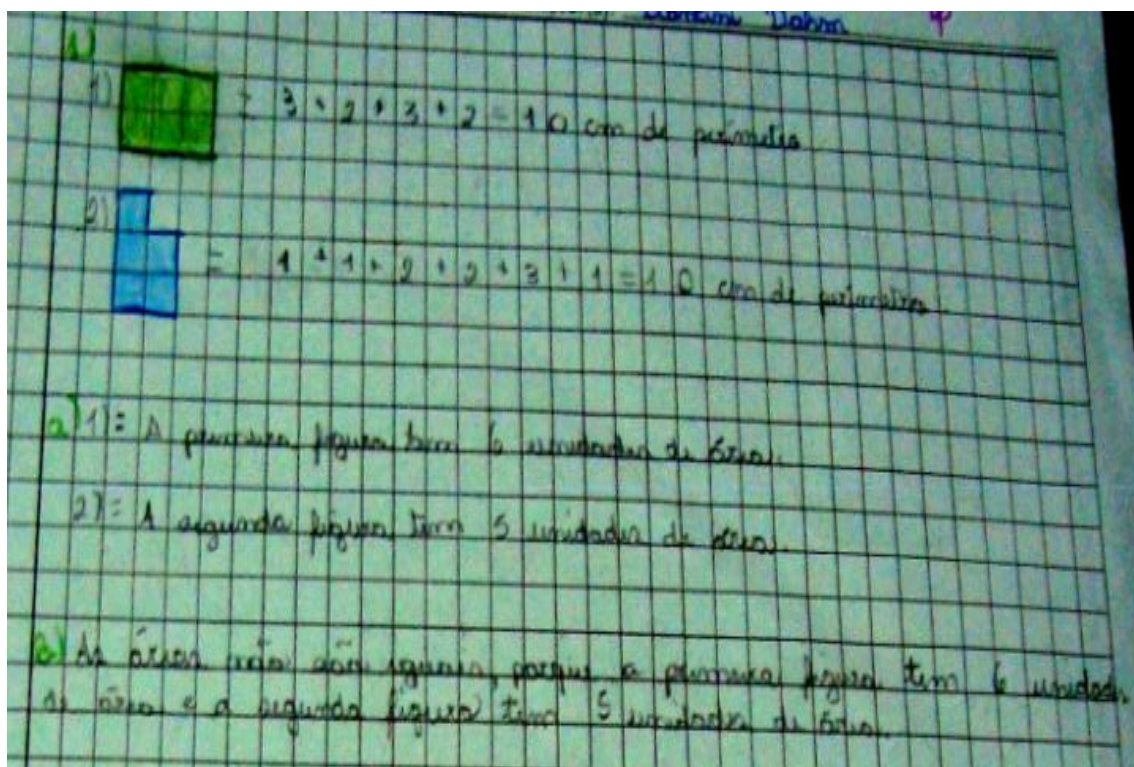 Dahm
1)
1) = 3 + 2 + 3 + 2 = 10 cm de perímetro
2) = 1 + 1 + 2 + 2 + 3 + 1 = 10 cm de perímetro.
a) 1) = A primeira figura tem 6 unidades de área.
2) = A segunda figura tem 5 unidades de área.
B) As áreas não são iguais, porque a primeira figura tem 6 unidades
de área e a segunda figura tem 5 unidades de área.